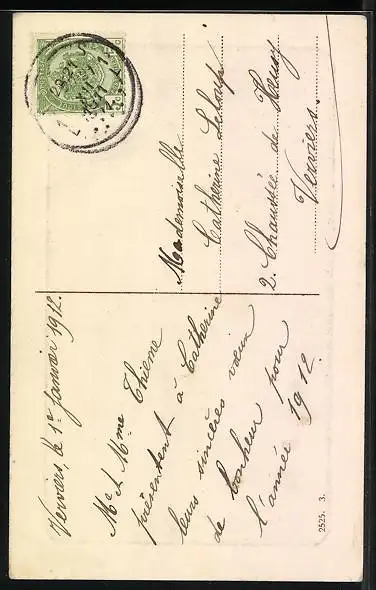 Verviers, le 1er Janvier 1912.
Mr & Mme Thieme
présentent à Catherine
leurs sincères vœux
de bonheur pour
l'année 1912.
Mademoiselle
Catherine
2. Chaussée de Heusy
Verviers.
2525. 3.